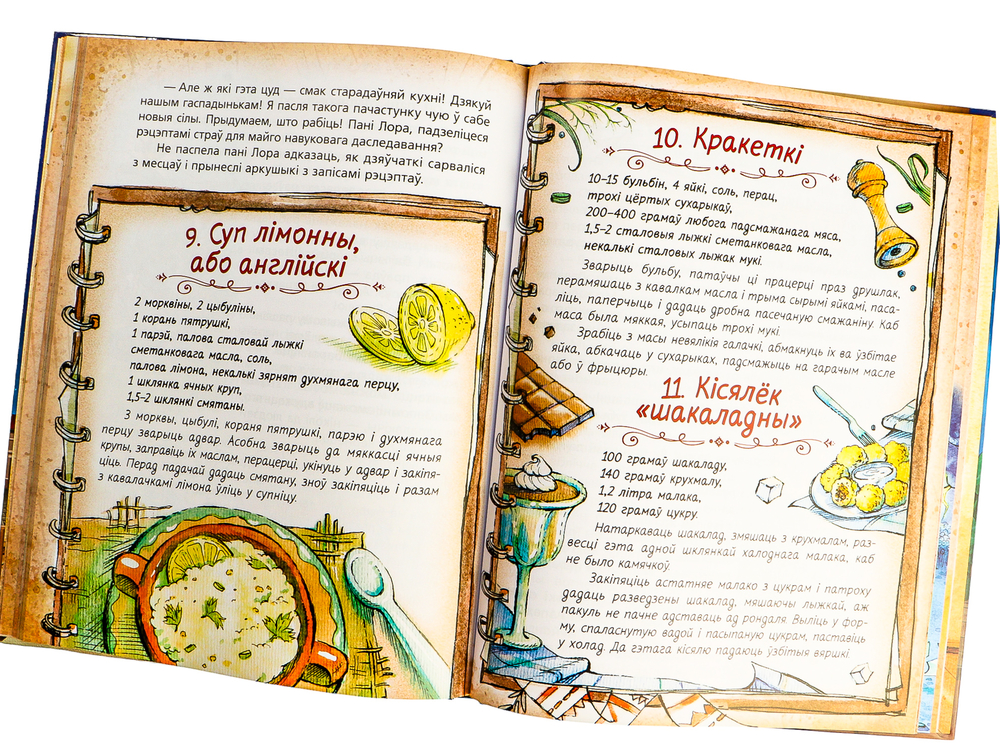 — Але ж які гэта цуд — смак старадаўняй кухні! Дзякуй
нашым гаспадынькам! Я пасля такога пачастунку чую ў сабе
новыя сілы. Прыдумаем, што рабіць! Пані Лора, падзеліцеся
рэцэптамі страў для майго навуковага даследавання?
Не паспела пані Лора адказаць, як дзяўчаткі сарваліся
з месцаў і прынеслі аркушыкі з запісамі рэцэптаў.
9. Суп лімонны,
або англійскі
2 морквіны, 2 цыбуліны,
1 корань пятрушкі,
1 парэй, палова сталовай лыжкі
сметанковага масла, соль,
палова лімона, некалькі зярнят духмянага перцу,
1 шклянка ячных круп,
1,5–2 шклянкі смятаны.
З морквы, цыбулі, кораня пятрушкі, парэю і духмянага
перцу зварыць адвар. Асобна зварыць да мяккасці ячныя
крупы, заправіць іх маслам, перацерці, укінуць у адвар і закіпя-
ціць. Перад падачай дадаць смятану, зноў закіпяціць і разам
з кавалачкамі лімона ўліць у супніцу.
10. Кракеткі
10–15 бульбін, 4 яйкі, соль, перац,
трохі цёртых сухарыкаў,
200–400 грамаў любога падсмажанага мяса,
1,5–2 сталовыя лыжкі сметанковага масла,
некалькі сталовых лыжак мукі.
Зварыць бульбу, патаўчы ці працерці праз друшлак,
перамяшаць з кавалкам масла і трыма сырымі яйкамі, паса-
ліць, паперчыць і дадаць дробна пасечаную смажаніну. Каб
маса была мяккая, усыпаць трохі мукі.
Зрабіць з масы невялікія галачкі, абмакнуць іх ва ўзбітае
яйка, абкачаць у сухарыках, падсмажыць на гарачым масле
або ў фрыцюры.
11. Кісялёк
«шакаладны»
100 грамаў шакаладу,
140 грамаў крухмалу,
1,2 літра малака,
120 грамаў цукру.
Натаркаваць шакалад, змяшаць з крухмалам, раз-
весці гэта адной шклянкай халоднага малака, каб
не было камячкоў.
Закіпяціць астатняе малако з цукрам і патроху
дадаць разведзены шакалад, мяшаючы лыжкай, аж
пакуль не пачне адставаць ад рондаля. Выліць у фор-
му, спаласнутую вадой і пасыпаную цукрам, паставіць
у холад. Да гэтага кісялю падаюць ўзбітыя вяршкі.